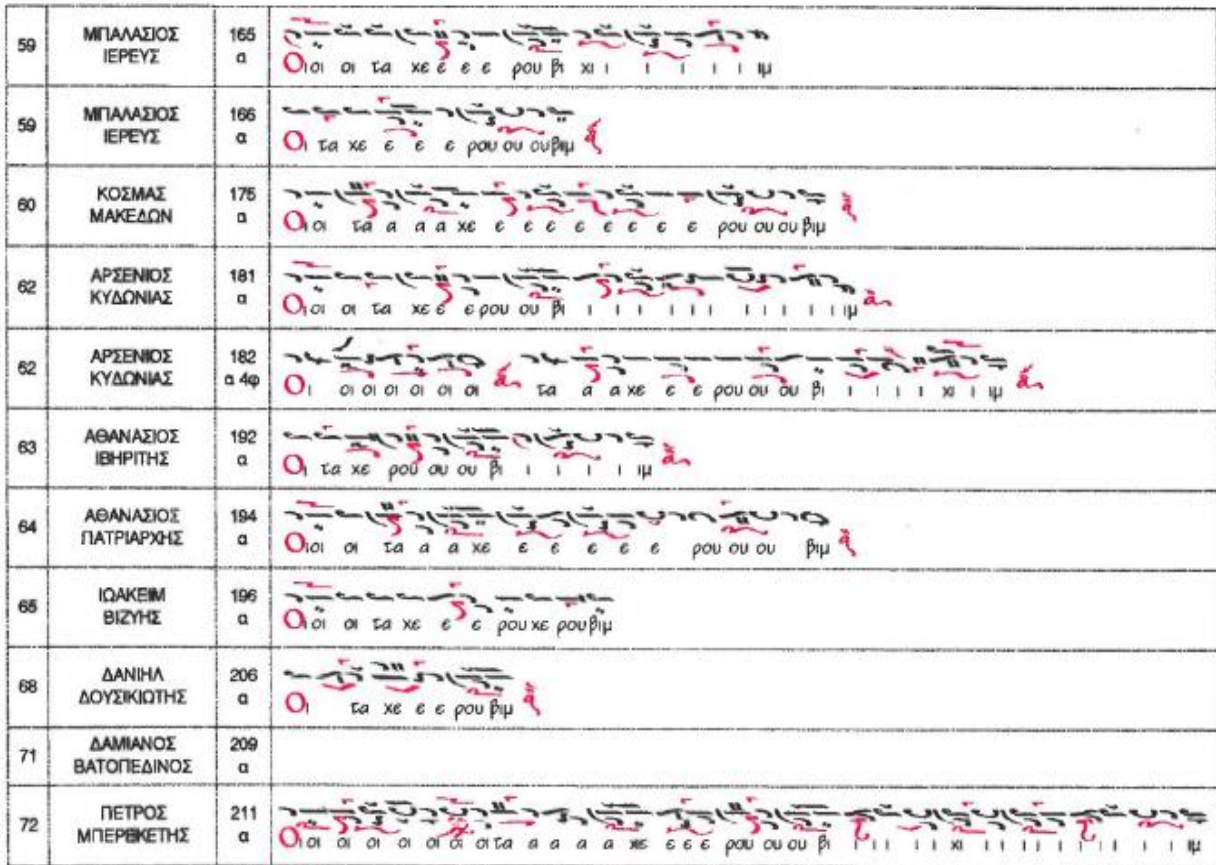 59 ΜΠΑΛΑΣΙΟΣ ΙΕΡΕΥΣ 165 α Οι οι οι τα χε ε ε ε ρου βι χι ι ι ι ι ι ι ιμ
59 ΜΠΑΛΑΣΙΟΣ ΙΕΡΕΥΣ 166 α Οι τα χε ε ε ε ρου ου ου βιμ
60 ΚΟΣΜΑΣ ΜΑΚΕΔΩΝ 175 α Οι οι τα α α α χε ε ε ε ε ε ε ε ε ρου ου ου βιμ
62 ΑΡΣΕΝΙΟΣ ΚΥΔΩΝΙΑΣ 181 α Οι οι οι τα χε ε ε ρου ου βι ι ι ι ι ι ι ι ι ι ι ιμ
62 ΑΡΣΕΝΙΟΣ ΚΥΔΩΝΙΑΣ 182 α 4φ Οι οι οι οι οι οι οι τα α α χε ε ε ρου ου ου βι ι ι ι ι χι ι ιμ
63 ΑΘΑΝΑΣΙΟΣ ΙΒΗΡΙΤΗΣ 192 α Οι τα χε ρου ου ου βι ι ι ι ι ιμ
64 ΑΘΑΝΑΣΙΟΣ ΠΑΤΡΙΑΡΧΗΣ 194 α Οι οι οι τα α α χε ε ε ε ε ε ρου ου ου βιμ
65 ΙΩΑΚΕΙΜ ΒΙΖΥΗΣ 196 α Οι οι οι τα χε ε ε ρου χε ρου βιμ
68 ΔΑΝΙΗΛ ΔΟΥΣΙΚΙΩΤΗΣ 206 α Οι τα χε ε ε ρου βιμ
71 ΔΑΜΙΑΝΟΣ ΒΑΤΟΠΕΔΙΝΟΣ 209 α
72 ΠΕΤΡΟΣ ΜΠΕΡΕΚΕΤΗΣ 211 α Οι οι οι οι οι οι οι τα α α α α χε ε ε ε ρου ου ου βι ι ι ι ι χι ι ι ι ι ι ι ι ι ιμ